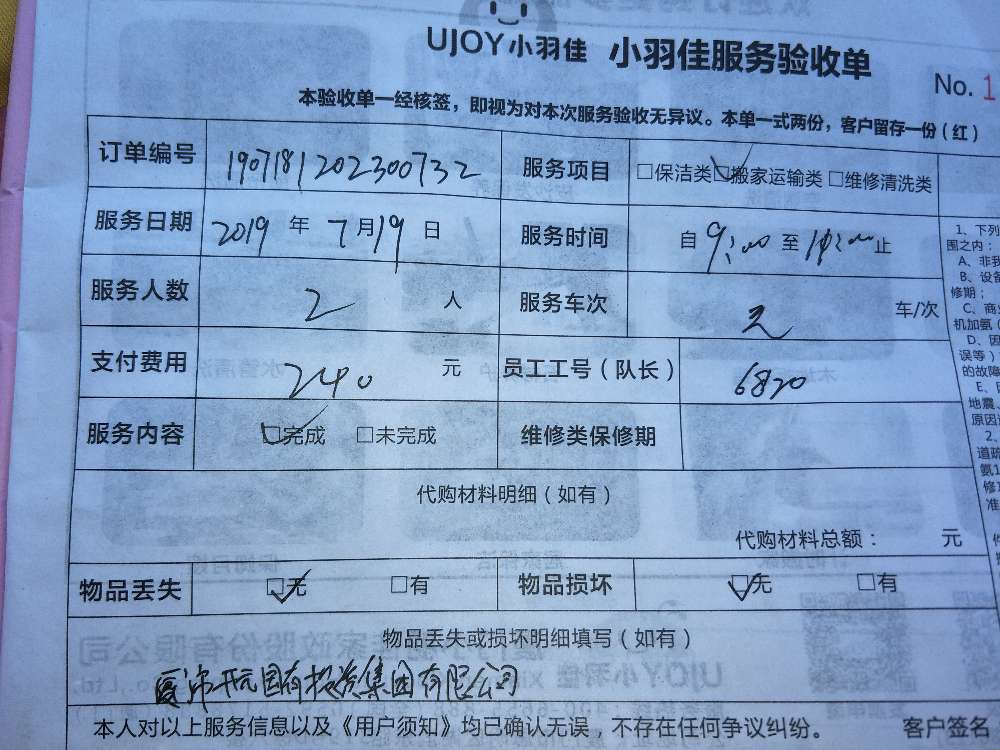 UJOY小羽佳 小羽佳服务验收单
No. 1
本验收单一经核签，即视为对本次服务验收无异议。本单一式两份，客户留存一份（红）
订单编号 190718120230073​2 服务项目 □保洁类 ☑搬家运输类 □维修清洗类
服务日期 2019 年 7 月 19 日 服务时间 自 9:00 至 10:00 止
服务人数 2 人 服务车次 2 车/次
支付费用 240 元 员工工号（队长） 6820
服务内容 ☑完成 □未完成 维修类保修期
代购材料明细（如有）
代购材料总额： 元
物品丢失 ☑无 □有 物品损坏 ☑无 □有
物品丢失或损坏明细填写（如有）
厦门开元国有投资集团有限公司
本人对以上服务信息以及《用户须知》均已确认无误，不存在任何争议纠纷。 客户签名
1、下列
围之内：
A、非我
B、设备
修期；
C、商
机加氨（
D、因
误等）
的故障
E、因
地震、
原因
2、
道疏
氨1
修
准